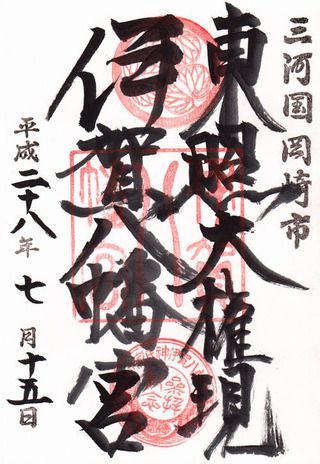 三河国岡崎市
東照大権現
伊賀八幡宮
平成二十八年七月十五日